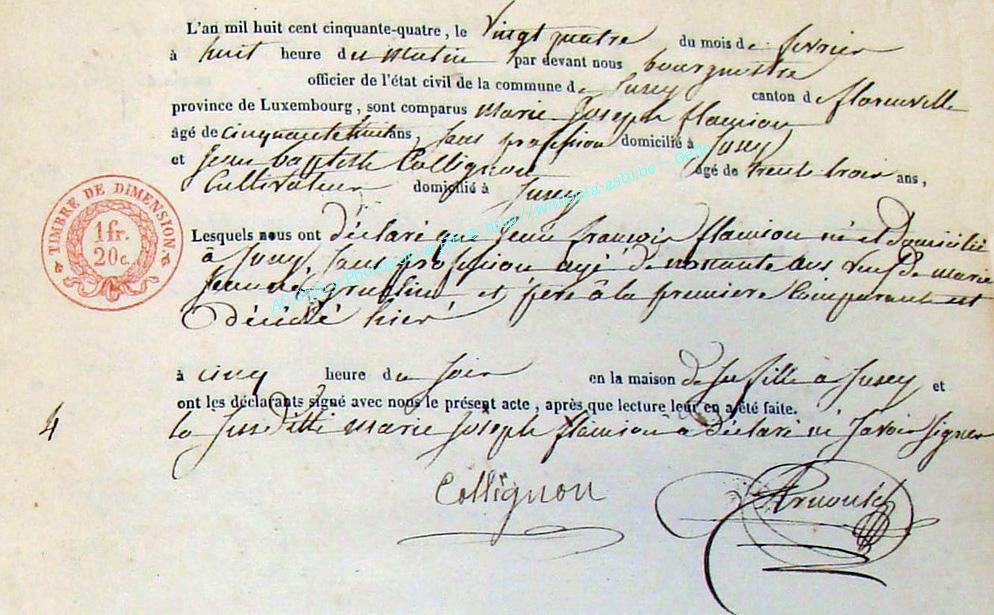 L'an mil huit cent cinquante-quatre, le Vingt quatre du mois de fevrier
à huit heure du matin par devant nous bourgmestre
officier de l'état civil de la commune de Jusey canton de florenville
province de Luxembourg, sont comparus marie Joseph flamion
âgé de cinquante huit ans, sans profession domicilié à Jusey
et Jean baptiste Collignon âgé de trente trois ans,
Cultivateur domicilié à Jusey
Lesquels nous ont déclaré que jean francois flamion né et domicilié
à Jusey sans profession agé de nonante ans veuf de marie
Jeanne et père à la premiere Comparant est
Décédé hier
à cinq heure du soir en la maison de sa fille à Jusey et
ont les déclarants signé avec nous le présent acte, après que lecture leur en a été faite.
4 la susditte marie Joseph flamion a déclaré ne savoir signer
Collignon Arnould
TIMBRE DE DIMENSION
1 fr.
20 c.